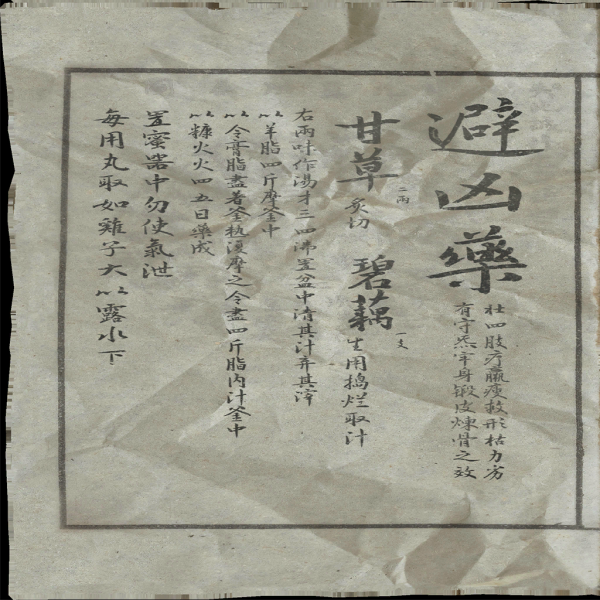 避凶藥
壮四肢疗羸瘦救形枯力劣
有守炁牢身锻皮煉骨之效
甘草二兩炙切 碧藕一支生用搗烂取汁
右兩味作湯才三四沸置盆中清其汁弃其滓
以羊脂四斤摩釜中
令膏脂盡着釜热復摩之令盡四斤脂内汁釜中
以糠火火四五日藥成
置蜜器中勿使氣泄
每用丸取如雞子大以露水下